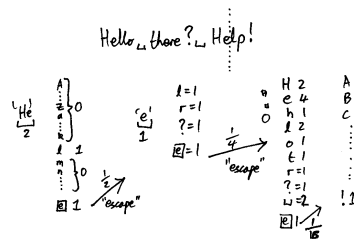 Hello␣there?␣Help!
'He'
2
A
z
a
k
0
l 1
m
n
0
e 1
1/2
"escape"
'e'
1
l=1
r=1
?=1
e=1
1/4
"escape"
0
H 2
e 4
h 1
l 2
o 1
t 1
r=1
?=1
␣=2
e 1
A
B
C
! 1